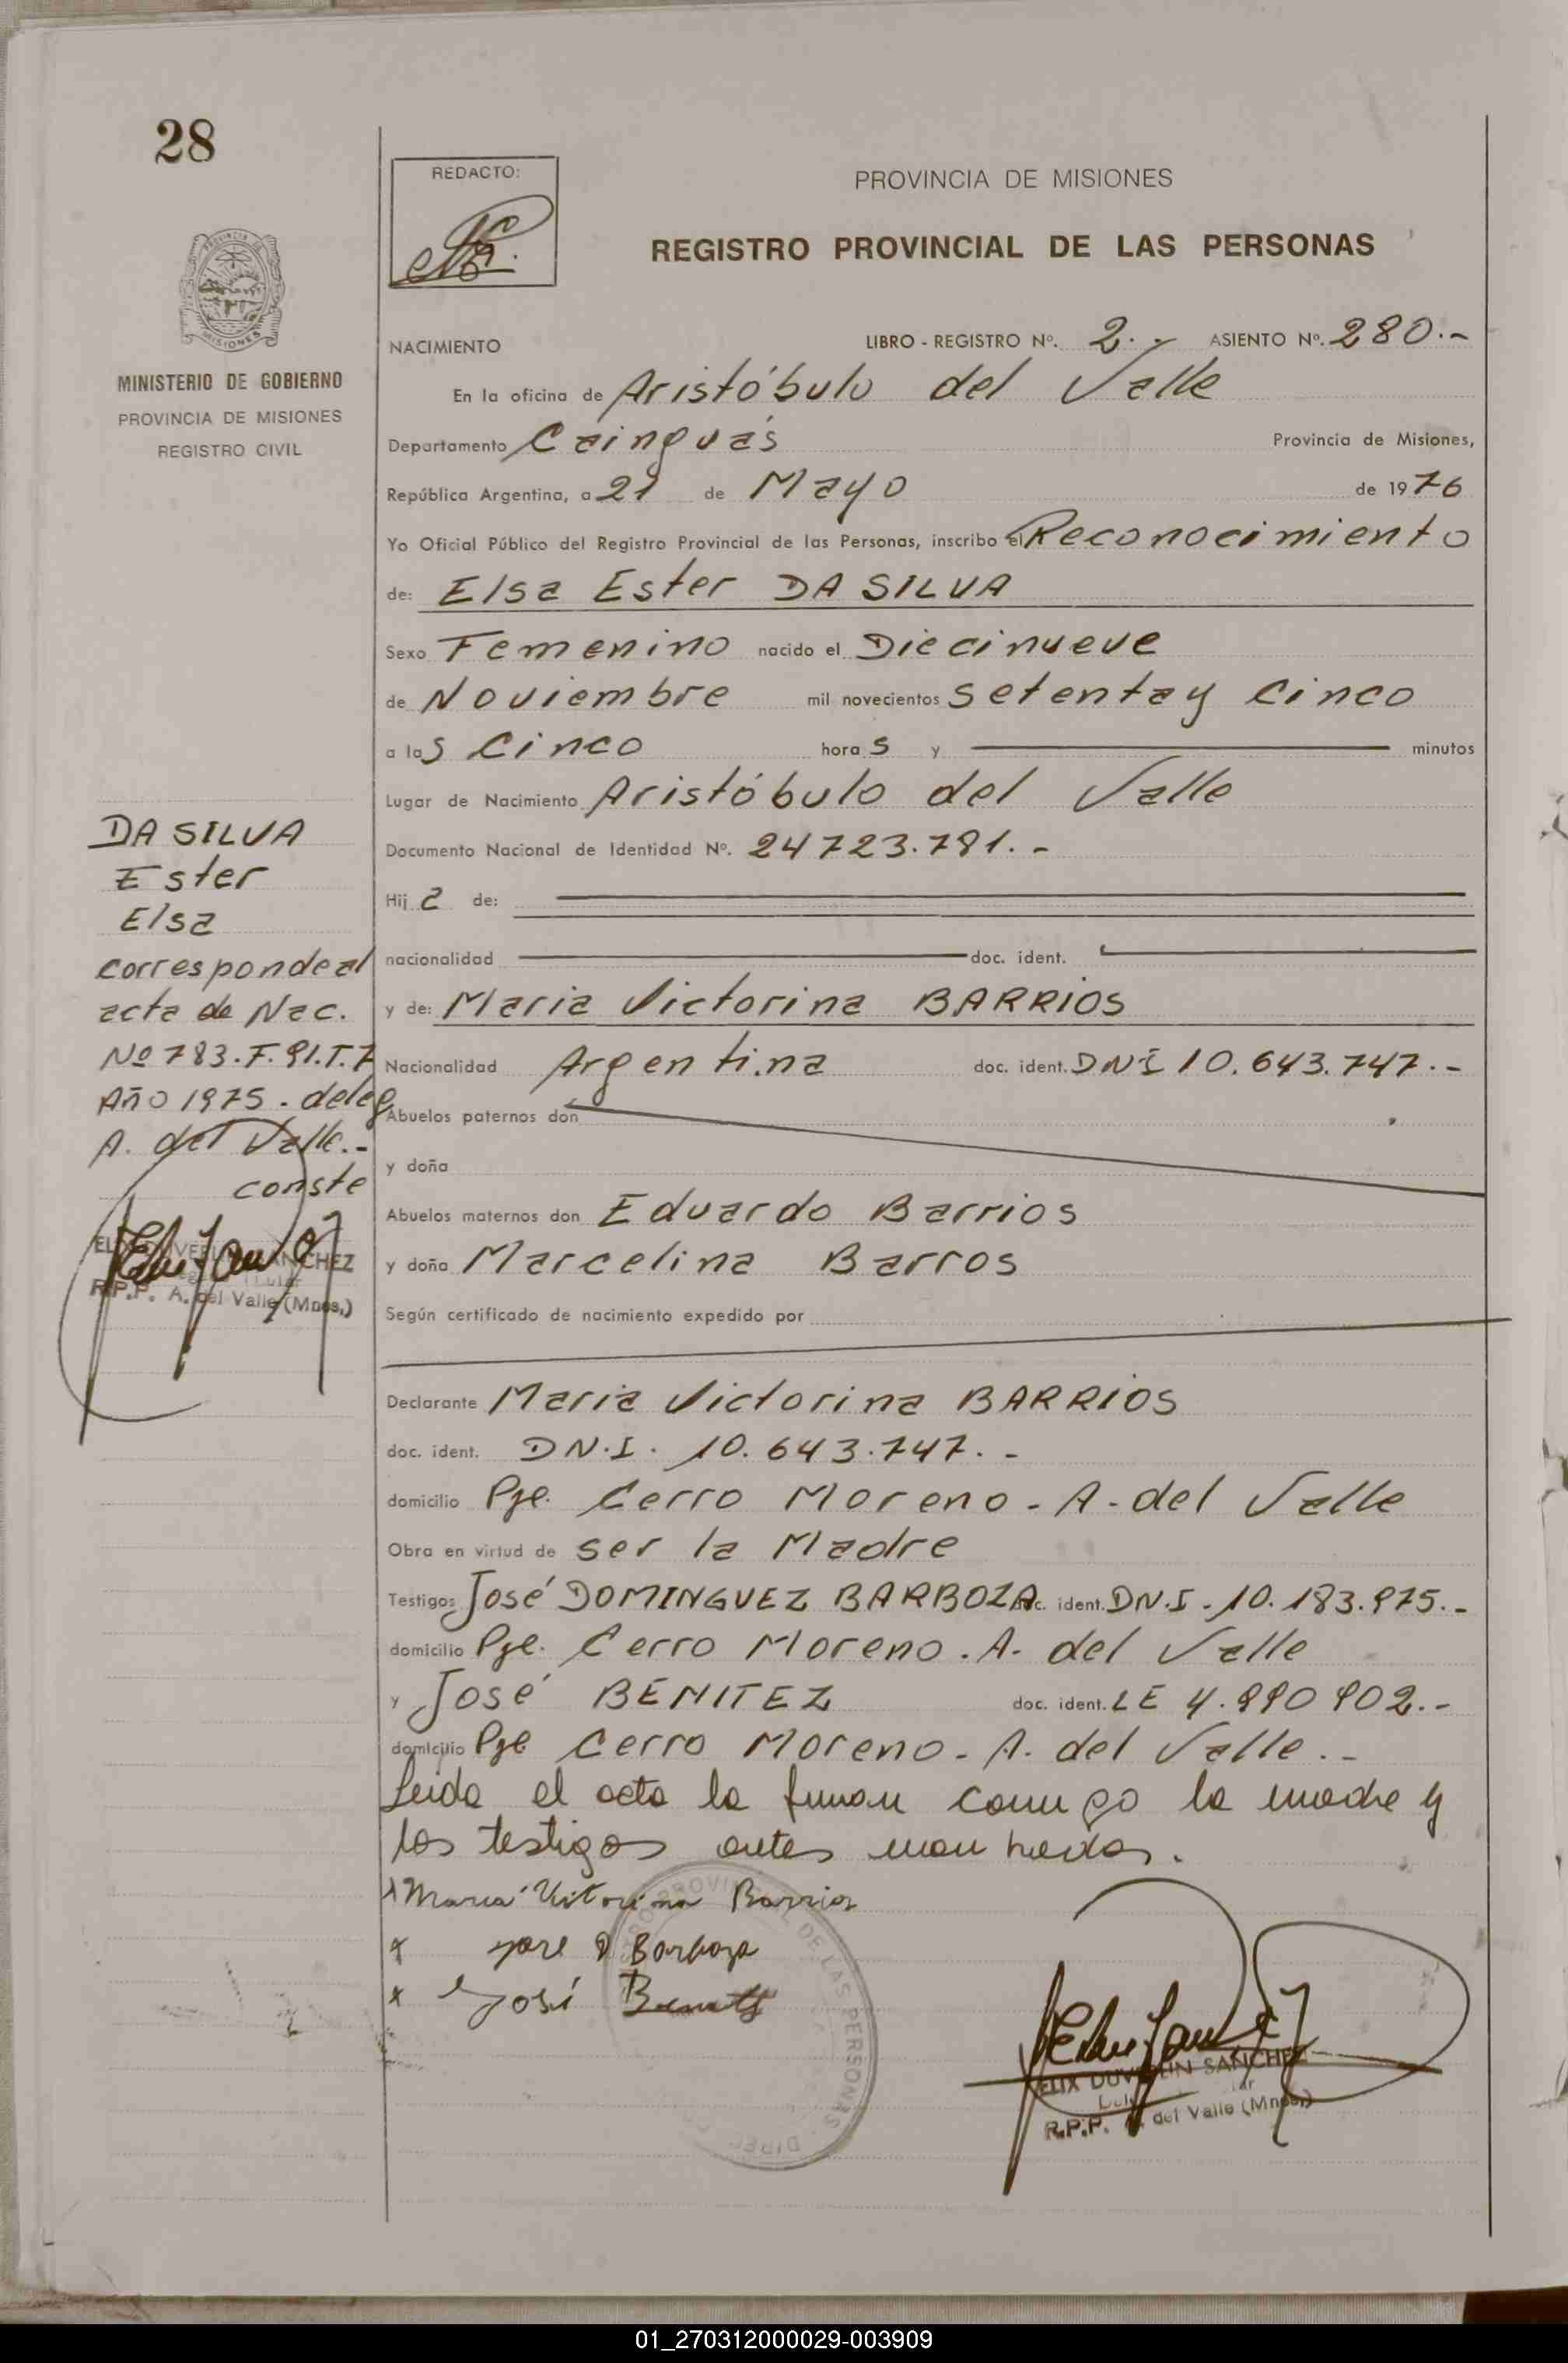 28
REDACTO:
PROVINCIA DE MISIONES
REGISTRO PROVINCIAL DE LAS PERSONAS
MISIONES
MINISTERIO DE GOBIERNO
PROVINCIA DE MISIONES
REGISTRO CIVIL
NACIMIENTO LIBRO - REGISTRO Nº. 2.- ASIENTO Nº. 280.-
En la oficina de Aristóbulo del Valle
Departamento Cainguás Provincia de Misiones,
República Argentina, a 21 de Mayo de 1976
Yo Oficial Público del Registro Provincial de las Personas, inscribo el Reconocimiento
de: Elsa Ester DA SILVA
Sexo Femenino nacido el Diecinueve
de Noviembre mil novecientos setenta y cinco
a las cinco horas y minutos
Lugar de Nacimiento Aristóbulo del Valle
Documento Nacional de Identidad Nº. 24723.791.-
Hija de:
nacionalidad doc. ident.
y de: Maria Victorina BARRIOS
Nacionalidad Argentina doc. ident. DNI 10.643.747.-
Abuelos paternos don
y doña
Abuelos maternos don Eduardo Barrios
y doña Marcelina Barros
Según certificado de nacimiento expedido por
DA SILVA
Ester
Elsa
corresponde al
acta de Nac.
Nº 783.F.91.T.7
Año 1975 - deleg
A. del Valle.-
conste
R.P.P. A. del Valle (Mnes.)
Declarante Maria Victorina BARRIOS
doc. ident. DN.I. 10.643.747.-
domicilio Pje. Cerro Moreno - A. del Valle
Obra en virtud de ser la Madre
Testigos José DOMINGUEZ BARBOZA doc. ident. DN.I. 10.183.975.-
domicilio Pje. Cerro Moreno. A. del Valle
y José BENITEZ doc. ident. LE 4.990902.-
domicilio Pje Cerro Moreno - A. del Valle.-
Leida el acta la firman conmigo la madre y
los testigos antes mencionados.
x Maria Victorina Barrios
x Jose D Barboza
x José Benitez
FELIX DUVERLIN SANCHEZ
R.P.P. A. del Valle (Mnes.)
01_270312000029-003909